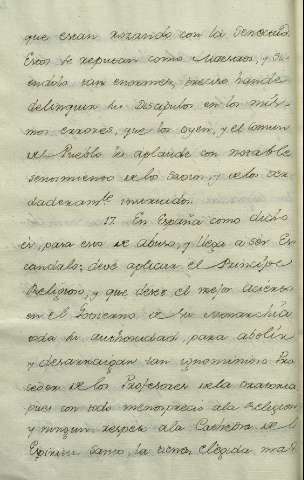 que estan rozando con la Demencia.
Estos se reputan como Maestros, y
siendolo tan enormes, preciso han de
delinquir los Discipulos en los mis-
mos errores, que los oyen, y el comun
del Pueblo les aplaude con notable
sentimiento de los Savios, y de los ver-
daderam.te instruidos.
17. En España como dicho
es, para eso de Abuso, y llega a ser Es-
candalo; deve aplicar el Principe
Religioso, y que desee el mejor acierto
en el Govierno de su Monarchia
toda su authoridad, para abolir
y desarraigar tan ignominioso Pro-
ceder de los Profesores de la Oratoria
pues con todo menosprecio a la Religion
y ningun respeto a la Cathedra de el
Espiritu Santo, la tienen elegida, mas